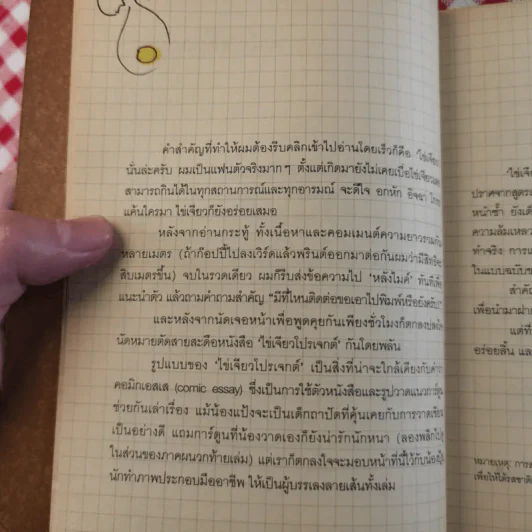 คำสำคัญที่ทำให้ผมต้องรีบคลิกเข้าไปอ่านโดยเร็วก็คือ 'ไข่เจียว'
นั่นล่ะครับ ผมเป็นแฟนตัวจริงมากๆ ตั้งแต่เกิดมายังไม่เคยเบื่อไข่เจียวเลย
สามารถกินได้ในทุกสถานการณ์และทุกอารมณ์ จะดีใจ อกหัก อิจฉา โกรธ
แค้นใครมา ไข่เจียวก็ยังอร่อยเสมอ
หลังจากอ่านกระทู้ ทั้งเนื้อหาและคอมเมนต์ความยาวรวมกัน
หลายเมตร (ถ้าก๊อปปี้ไปลงเวิร์ดแล้วพรินต์ออกมาต่อกันผมว่ามีสิทธิ
สิบเมตรขึ้น) จบในรวดเดียว ผมก็รีบส่งข้อความไป 'หลังไมค์' ทันทีเพื่อ
แนะนำตัว แล้วถามคำถามสำคัญ "มีที่ไหนติดต่อขอเอาไปพิมพ์หรือยังครับ"
และหลังจากนัดเจอหน้าเพื่อพูดคุยกันเพียงชั่วโมงก็ตกลงปลงใจ
นัดหมายตัดสายสะดือหนังสือ 'ไข่เจียวโปรเจกต์' กันโดยพลัน
รูปแบบของ 'ไข่เจียวโปรเจกต์' เป็นสิ่งที่น่าจะใกล้เคียงกับคำว่า
คอมิกเอสเส (comic essay) ซึ่งเป็นการใช้ตัวหนังสือและรูปวาดแนวการ์ตูน
ช่วยกันเล่าเรื่อง แม้น้องแป้งจะเป็นเด็กถาปัดที่คุ้นเคยกับการวาดเขียน
เป็นอย่างดี แถมการ์ตูนที่น้องวาดเองก็ยังน่ารักนักหนา (ลองพลิกไปดู
ในส่วนของภาคผนวกท้ายเล่ม) แต่เราก็ตกลงใจจะมอบหน้าที่นี้ไว้กับน้อง
นักทำภาพประกอบมืออาชีพ ให้เป็นผู้บรรเลงลายเส้นทั้งเล่ม
'ไข่เจี
ปราศจากสูตร
หน้าซ้ำ ยังเ
ความล้มเหลว
ทำจริง การแ
ในแบบฉบับข
สำคั
เพื่อนำมาฝาก
แต่ที่
อร่อยลิ้น และ
หมายเหตุ: การส
เพื่อให้ได้รสชาติ